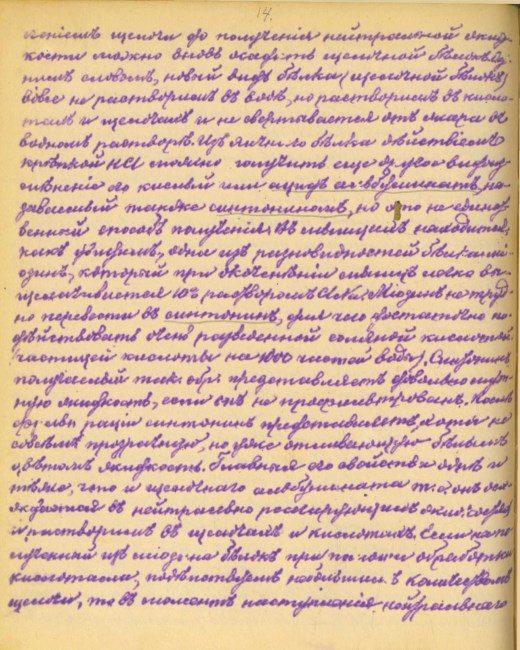 14.
щелочи до полученія нейтральной жид-
кости можно вновь осадить щелочной бѣлокъ. Од-
нимъ словомъ, новый видъ бѣлка (щелочной бѣлокъ)
вовсе не растворимъ въ водѣ, но растворимъ въ кисло-
тахъ и щелочахъ и не свертывается отъ жара въ
водномъ растворѣ. Изъ яичнаго бѣлка дѣйствіемъ
крѣпкой HCl можно получить еще другое видоиз-
мѣненіе его кислый или ацидъ-альбуминатъ, на-
зываемый также синтониномъ, но это не единст-
венный способъ полученія. Въ мышцахъ находится,
какъ одна изъ разновидностей бѣлка мі-
озинъ, который при окоченѣніи мышцъ легко вы-
щелачивается 10% растворомъ ClNa. Міозинъ не труд-
но перевести въ синтонинъ, для чего достаточно по-
дѣйствовать разведенной соляной кислотой
(частицей кислоты на 1000 частей воды). Синтонинъ
полученный так. обр. представляетъ довольно мут-
ную жидкость, если онъ не профильтрованъ. Послѣ
фильтраціи синтонинъ представляетъ, хотя не
совсѣмъ прозрачную, но уже отливающую бѣлымъ
цвѣтомъ жидкость. Главная его свойства однѣ и
тѣже, что и щелочного альбумината т.е. онъ оса-
ждается въ нейтрально реагирующихъ жидкостяхъ
и растворимъ въ щелочахъ и кислотахъ. Если къ по-
лученный изъ міозина бѣлокъ при помощи обработки
кислотами, подѣйствуемъ небольшимъ количествомъ
щелочи, то въ моментъ наступленія нейтральнаго